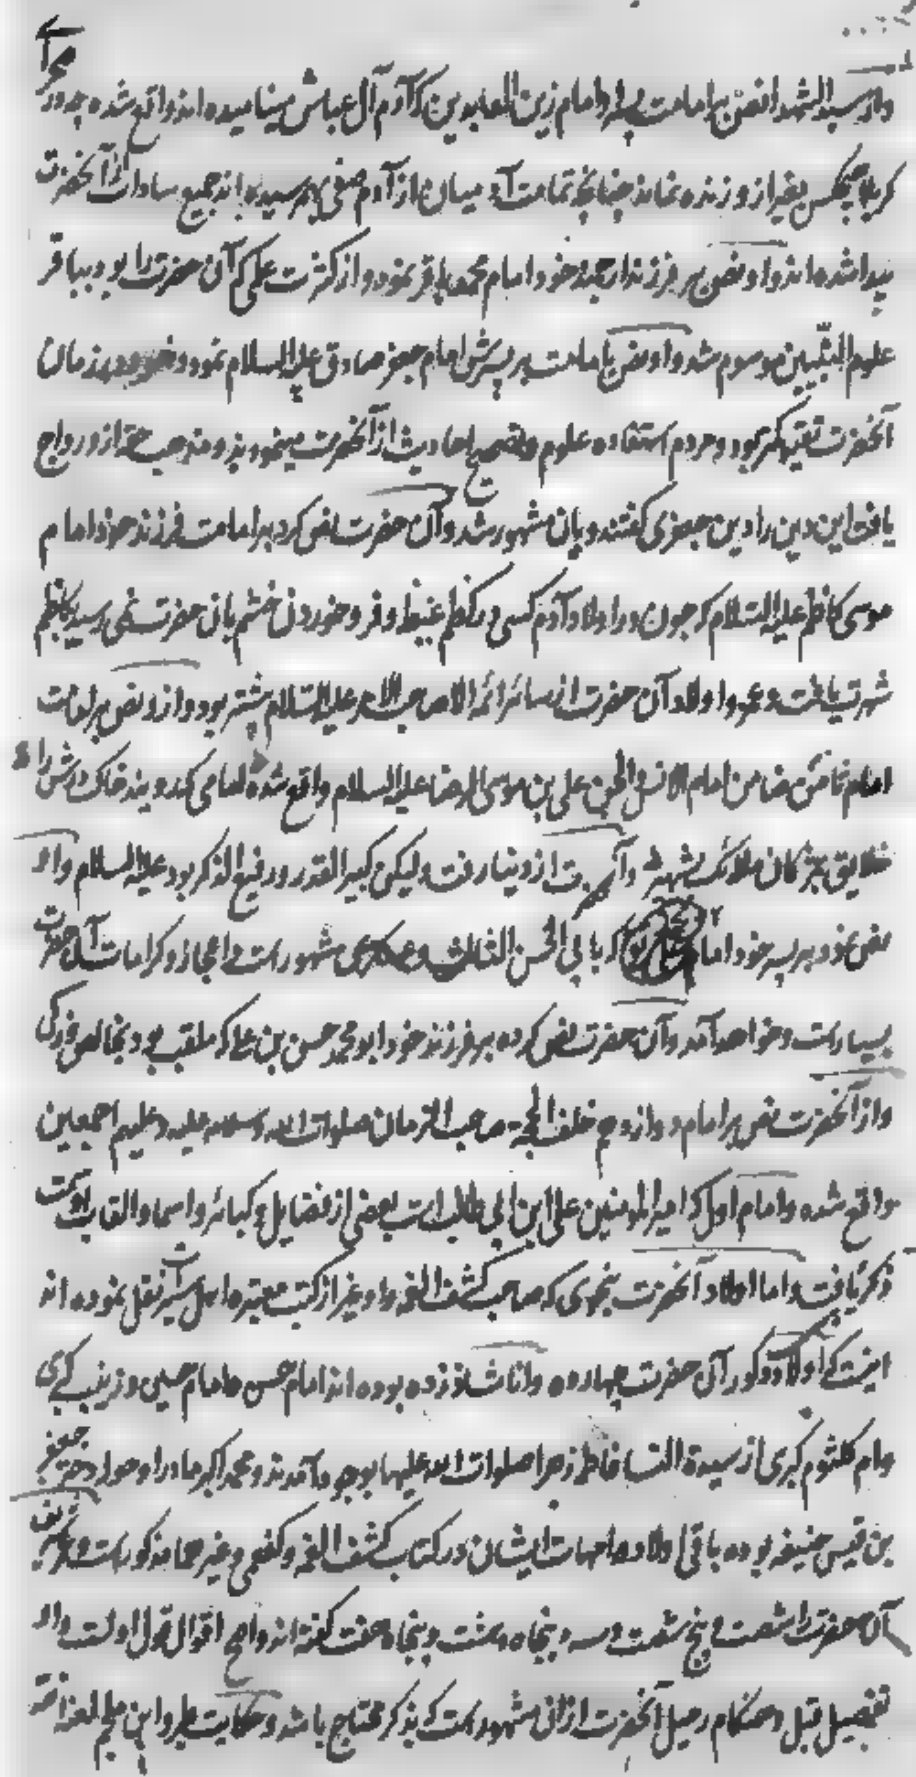 واز سید الشهدا نص بر امامت پسر او امام زین العابدین که آدم آل عباش مینامیده اند واقع شده چه در صحرای
کربلا هیچکس بغیر از و زنده نماند چنانچه تمامت آدمیان از آدم صفی بهم رسیده اند جمیع سادات از آنحضرت
پیدا شده اند و او نص بر فرزند ارجمند خود امام محمد باقر نمود و از کثرت علمی که آن حضرت را بود بباقر
علوم النبیین موسوم شد و او نص بامامت بر پسرش امام جعفر صادق علیه السلام نمود در زمان
آنحضرت تقیه کمتر بود و مردم استفاده علوم و تصحیح احادیث از آنحضرت مینمودند و مذهب حق ازو رواج
یافت این دین را دین جعفری گفتند و بان مشهور شد و آن حضرت نص کرد بر امامت فرزند خود امام
موسی کاظم علیه السلام که چون در اولاد آدم کسی در کظم غیظ و فرو خوردن خشم بان حضرت نمی رسید بکاظم
شهرت یافت و عمر و اولاد آن حضرت از سایر ائمه الا صاحب الامر علیه السلام بیشتر بود و ازو نص بر امامت
امام ثامن ضامن امام الانس و الجن علی بن موسی الرضا علیه السلام واقع شده امامی که روبند خاک درش را
خلایق بمژگان ملائک بشهپر و آنحضرت از دنیا رفت ولیکن کبیر القدر و رفیع الذکر بود علیه السلام و او
نص نمود بر پسر خود امام که بابی الحسن الثالث و عسکری مشهور است و اعجاز و کرامات آن حضرت
بسیار است و خواهد آمد و آن حضرت نص کرده بر فرزند خود ابو محمد حسن بن علی که ملقب بود بخالص و زکی
و از آنحضرت نص بر امام دوازدهم خلف الحجة صاحب الزمان صلوات الله و سلامه علیه و علیهم اجمعین
واقع شده و امام اول که امیر المومنین علی ابن ابی طالب است بعضی از فضایل و کبائر و اسما و القاب
ذکر یافت و اما اولاد آنحضرت بنحوی که صاحب کشف الغمه و غیر از کتب معتبره اهل سیر نقل نموده اند
اینست که اولاد ذکور آن حضرت چهارده و اناث نوزده بوده اند امام حسن و امام حسین و زینب کبری
و ام کلثوم کبری از سیدة النسا فاطمه زهرا صلوات الله علیها بوجود آمدند و محمد اکبر مادر او خوله دختر جعفر
بن قیس حنیفه بوده باقی اولاد و امهات ایشان در کتاب کشف الغمه و کفعمی و غیر هما مذکور است و عمر شریف
آن حضرت را شصت و پنج شصت و سه و پنجاه و هشت و پنجاه و هفت گفته اند و اصح اقوال قول اولست و او
تفصیل قتل و هنگام رحیل آنحضرت از ان مشهور است که بذکر محتاج باشد و حکایت و ابن ملجم